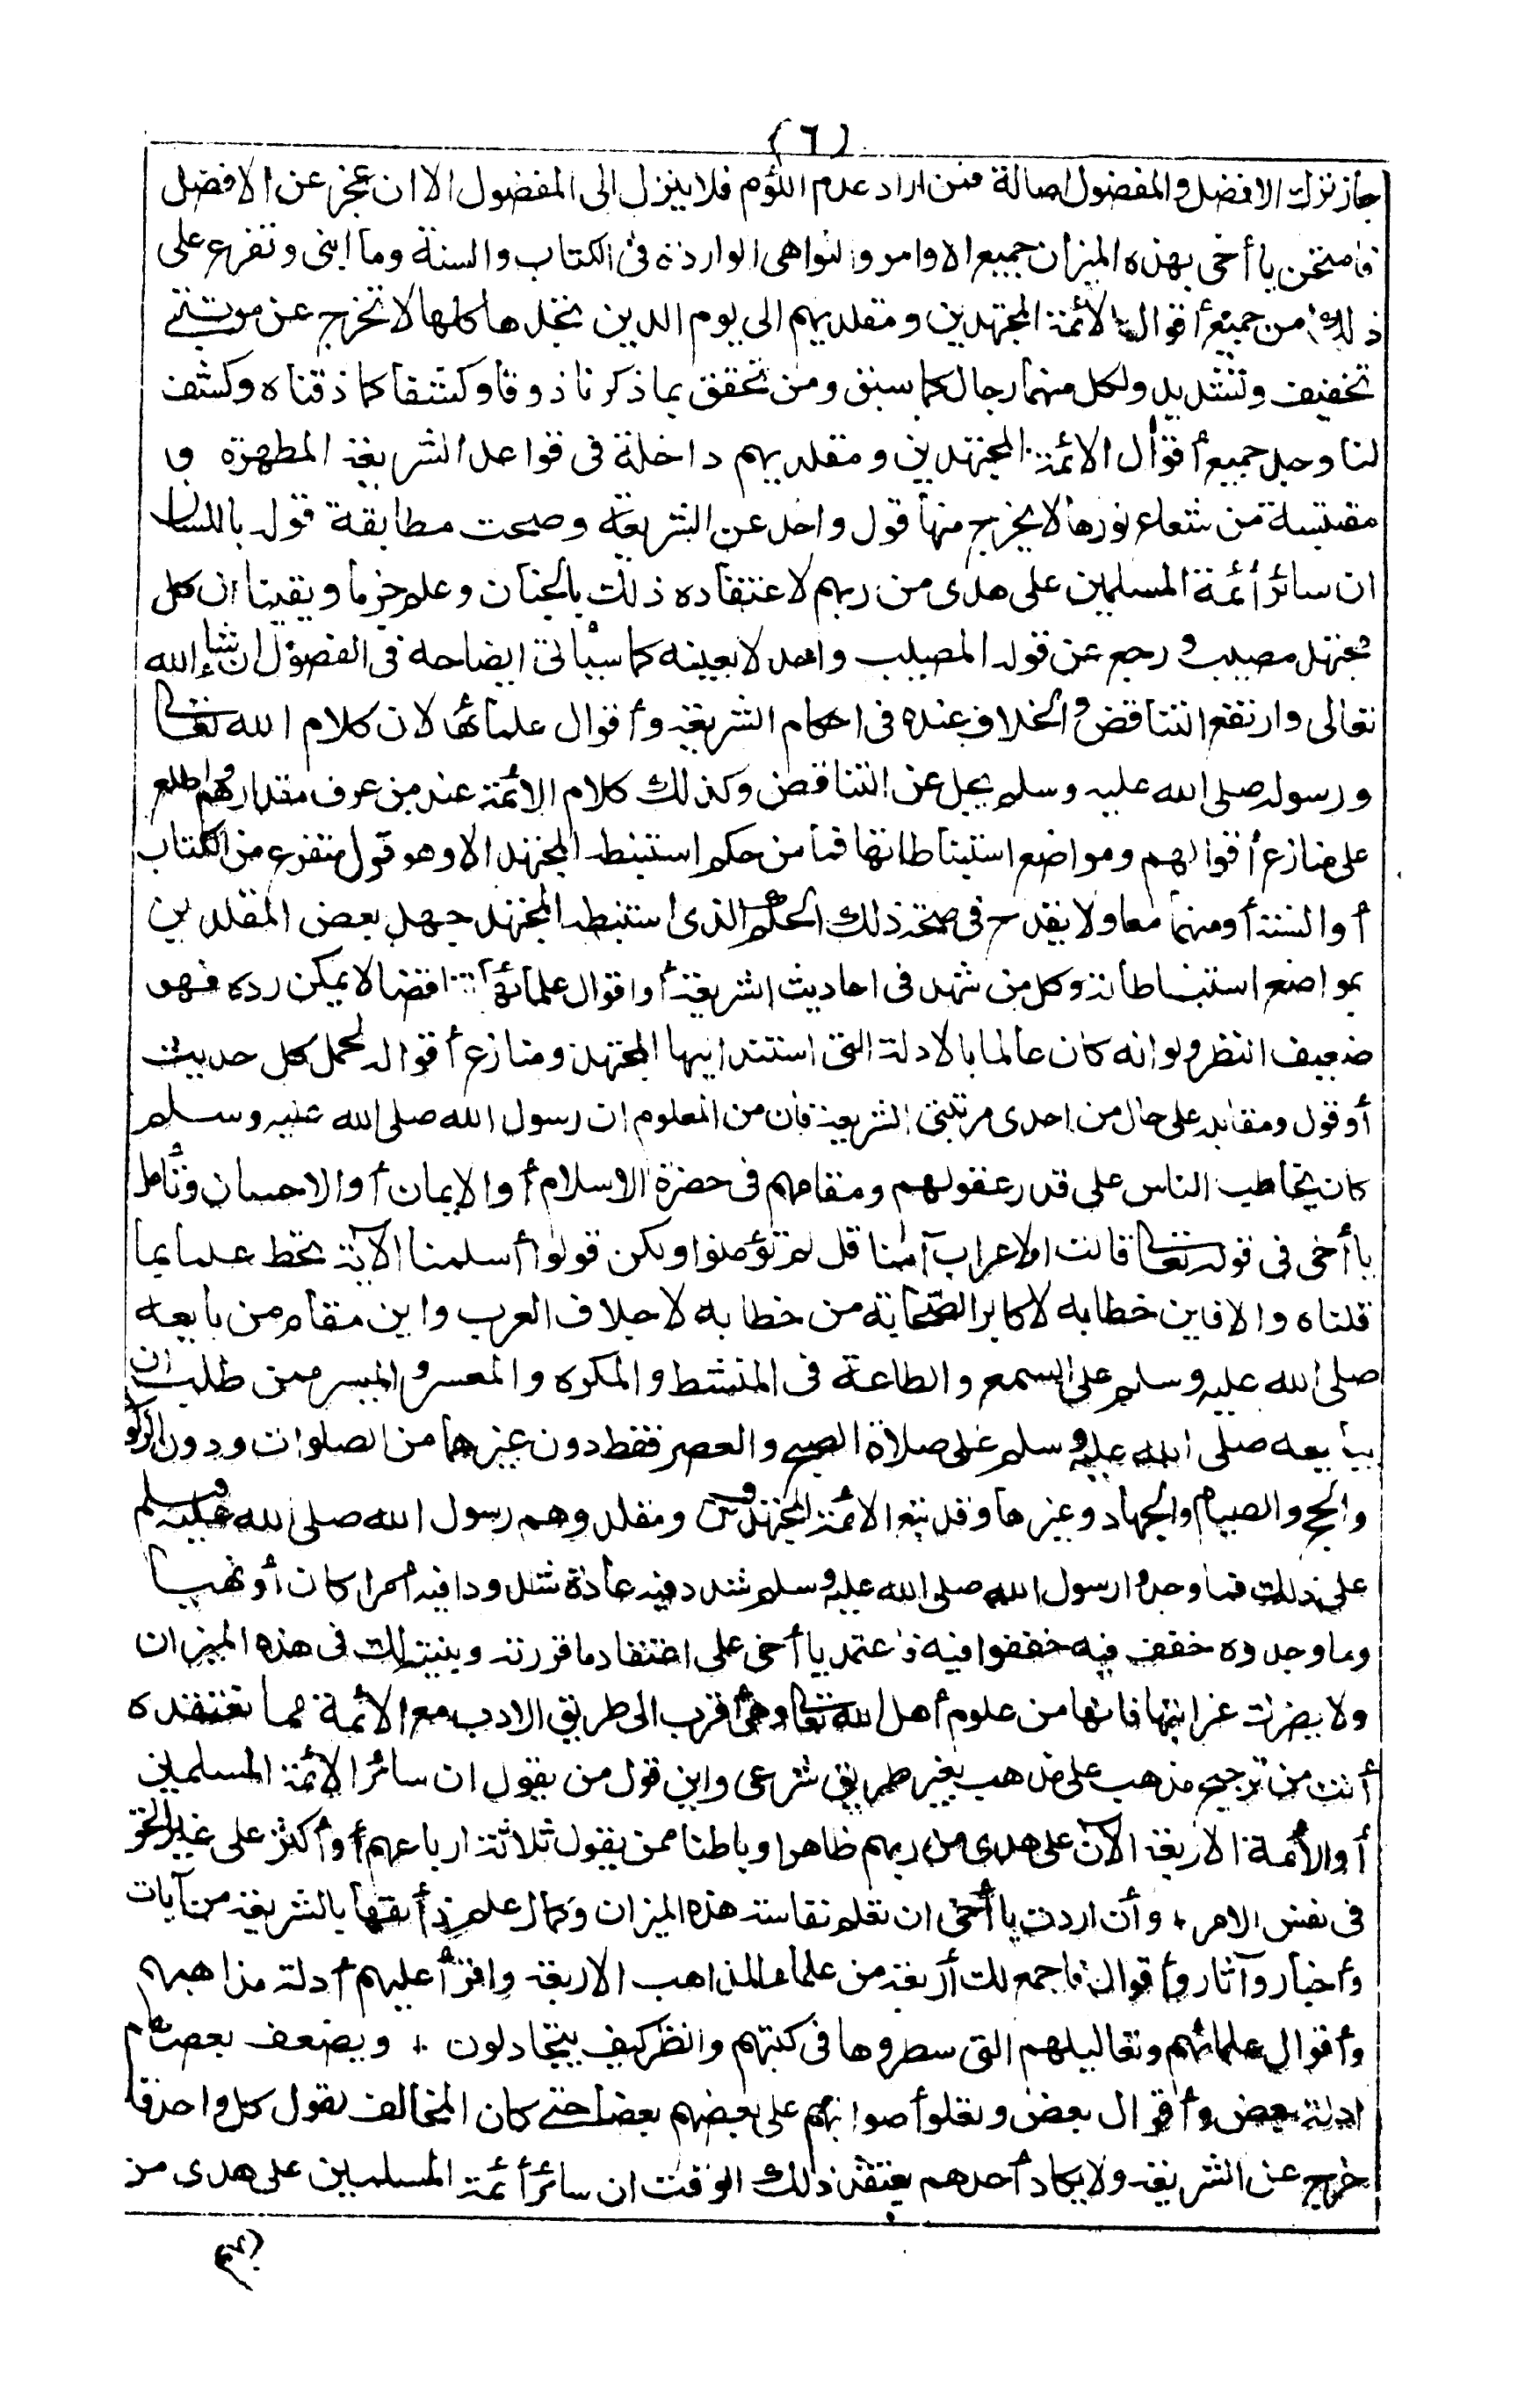 (٦)
جاز ترك الافضل والمفضول اصالة فمن اراد عدم اللؤم فلا ينزل الى المفضول الا ان عجز عن الافضل
فامتحن يا أخى بهذه الميزان جميع الاوامر والنواهى الواردة فى الكتاب والسنة وما ابنى وتفرع على
ذلك من جميع أقوال الأئمة المجتهدين ومقلديهم الى يوم الدين تجدها كلها لا تخرج عن مرتبتى
تخفيف وتشديد ولكل منهما رجال كما سبق ومن تحقق بما ذكرنا ذوقا وكشفا كما ذقناه وكشف
لنا وجد جميع أقوال الأئمة المجتهدين ومقلديهم داخلة فى قواعد الشريعة المطهرة و
مقتبسة من شعاع نورها لا يخرج منها قول واحد عن الشريعة وصحت مطابقة قوله باللسان
ان سائر أئمة المسلمين على هدى من ربهم لاعتقاده ذلك بالجنان وعلم جزما ويقينا ان كل
مجتهد مصيب ورجع عن قوله المصيب واحد لا بعينه كما سيأتى ايضاحه فى الفصول ان شاء الله
تعالى وارتفع التناقض والخلاف عنده فى احكام الشريعة وأقوال علمائها لان كلام الله تعالى
ورسوله صلى الله عليه وسلم يجل عن التناقض وكذلك كلام الأئمة عند من عرف مقدارهم واطلع
على منازع أقوالهم ومواضع استنباطاتها فما من حكم استنبطه المجتهد الا وهو قول متفرع من الكتاب
أو السنة أو منهما معا ولا يقدح فى صحة ذلك الحكم الذى استنبطه المجتهد جهل بعض المقلدين
بمواضع استنباطاته وكل من شهد فى احاديث الشريعة أو اقوال علمائها تناقضا لا يمكن رده فهو
ضعيف النظر ولو انه كان عالما بالادلة التى استند اليها المجتهد ومنازع أقواله لحمل كل حديث
أو قول ومقابله على حال من احدى مرتبتى الشريعة فان من المعلوم ان رسول الله صلى الله عليه وسلم
كان يخاطب الناس على قدر عقولهم ومقامهم فى حضرة الاسلام أو الايمان أو الاحسان وتأمل
يا أخى فى قوله تعالى قالت الاعراب آمنا قل لم تؤمنوا ولكن قولوا أسلمنا الآية تحط علما بما
قلناه والا فاين خطابه لاكابر الصحابة من خطابه لاجلاف العرب واين مقام من بايعه
صلى الله عليه وسلم على السمع والطاعة فى المنشط والمكره والمعسر والميسر ممن طلب ان
يبايعه صلى الله عليه وسلم على صلاة الصبح والعصر فقط دون غيرهما من الصلوات ودون الزكوة
والحج والصيام والجهاد وغيرها وقد تبع الأئمة المجتهدون ومقلدوهم رسول الله صلى الله عليه وسلم
على ذلك فما وجدوا رسول الله صلى الله عليه وسلم شدد فيه عادة شددوا فيه أمرا كان أو نهيا
وما وجدوه خفف فيه خففوا فيه فاعتمد يا أخى على اعتقاد ما قررته وبينته لك فى هذه الميزان
ولا يضرك غرابتها فانها من علوم أهل الله تعالى وهى أقرب الى طريق الادب مع الأئمة مما تعتقده
أنت من ترجيح مذهب على مذهب بغير طريق شرعى واين قول من يقول ان سائر الأئمة المسلمين
أو الأئمة الاربعة الآن على هدى من ربهم ظاهرا وباطنا ممن يقول ثلاثة ارباعهم أو أكثر على غير الحق
فى نفس الامر ، وأن اردت يا أخى ان تعلم نفاسة هذه الميزان وكمال علم ذائقها بالشريعة من آيات
وأخبار وآثار وأقوال فاجمع لك أربعة من علماء المذاهب الاربعة واقرأ عليهم أدلة مذاهبهم
وأقوال علمائهم وتعاليلهم التى سطروها فى كتبهم وانظر كيف يتجادلون ، ويضعف بعضهم
ادلة بعض وأقوال بعض وتعلو أصواتهم على بعضهم بعضا حتى كان المخالف لقول كل واحد قد
خرج عن الشريعة ولا يكاد أحدهم يعتقد ذلك الوقت ان سائر أئمة المسلمين على هدى من